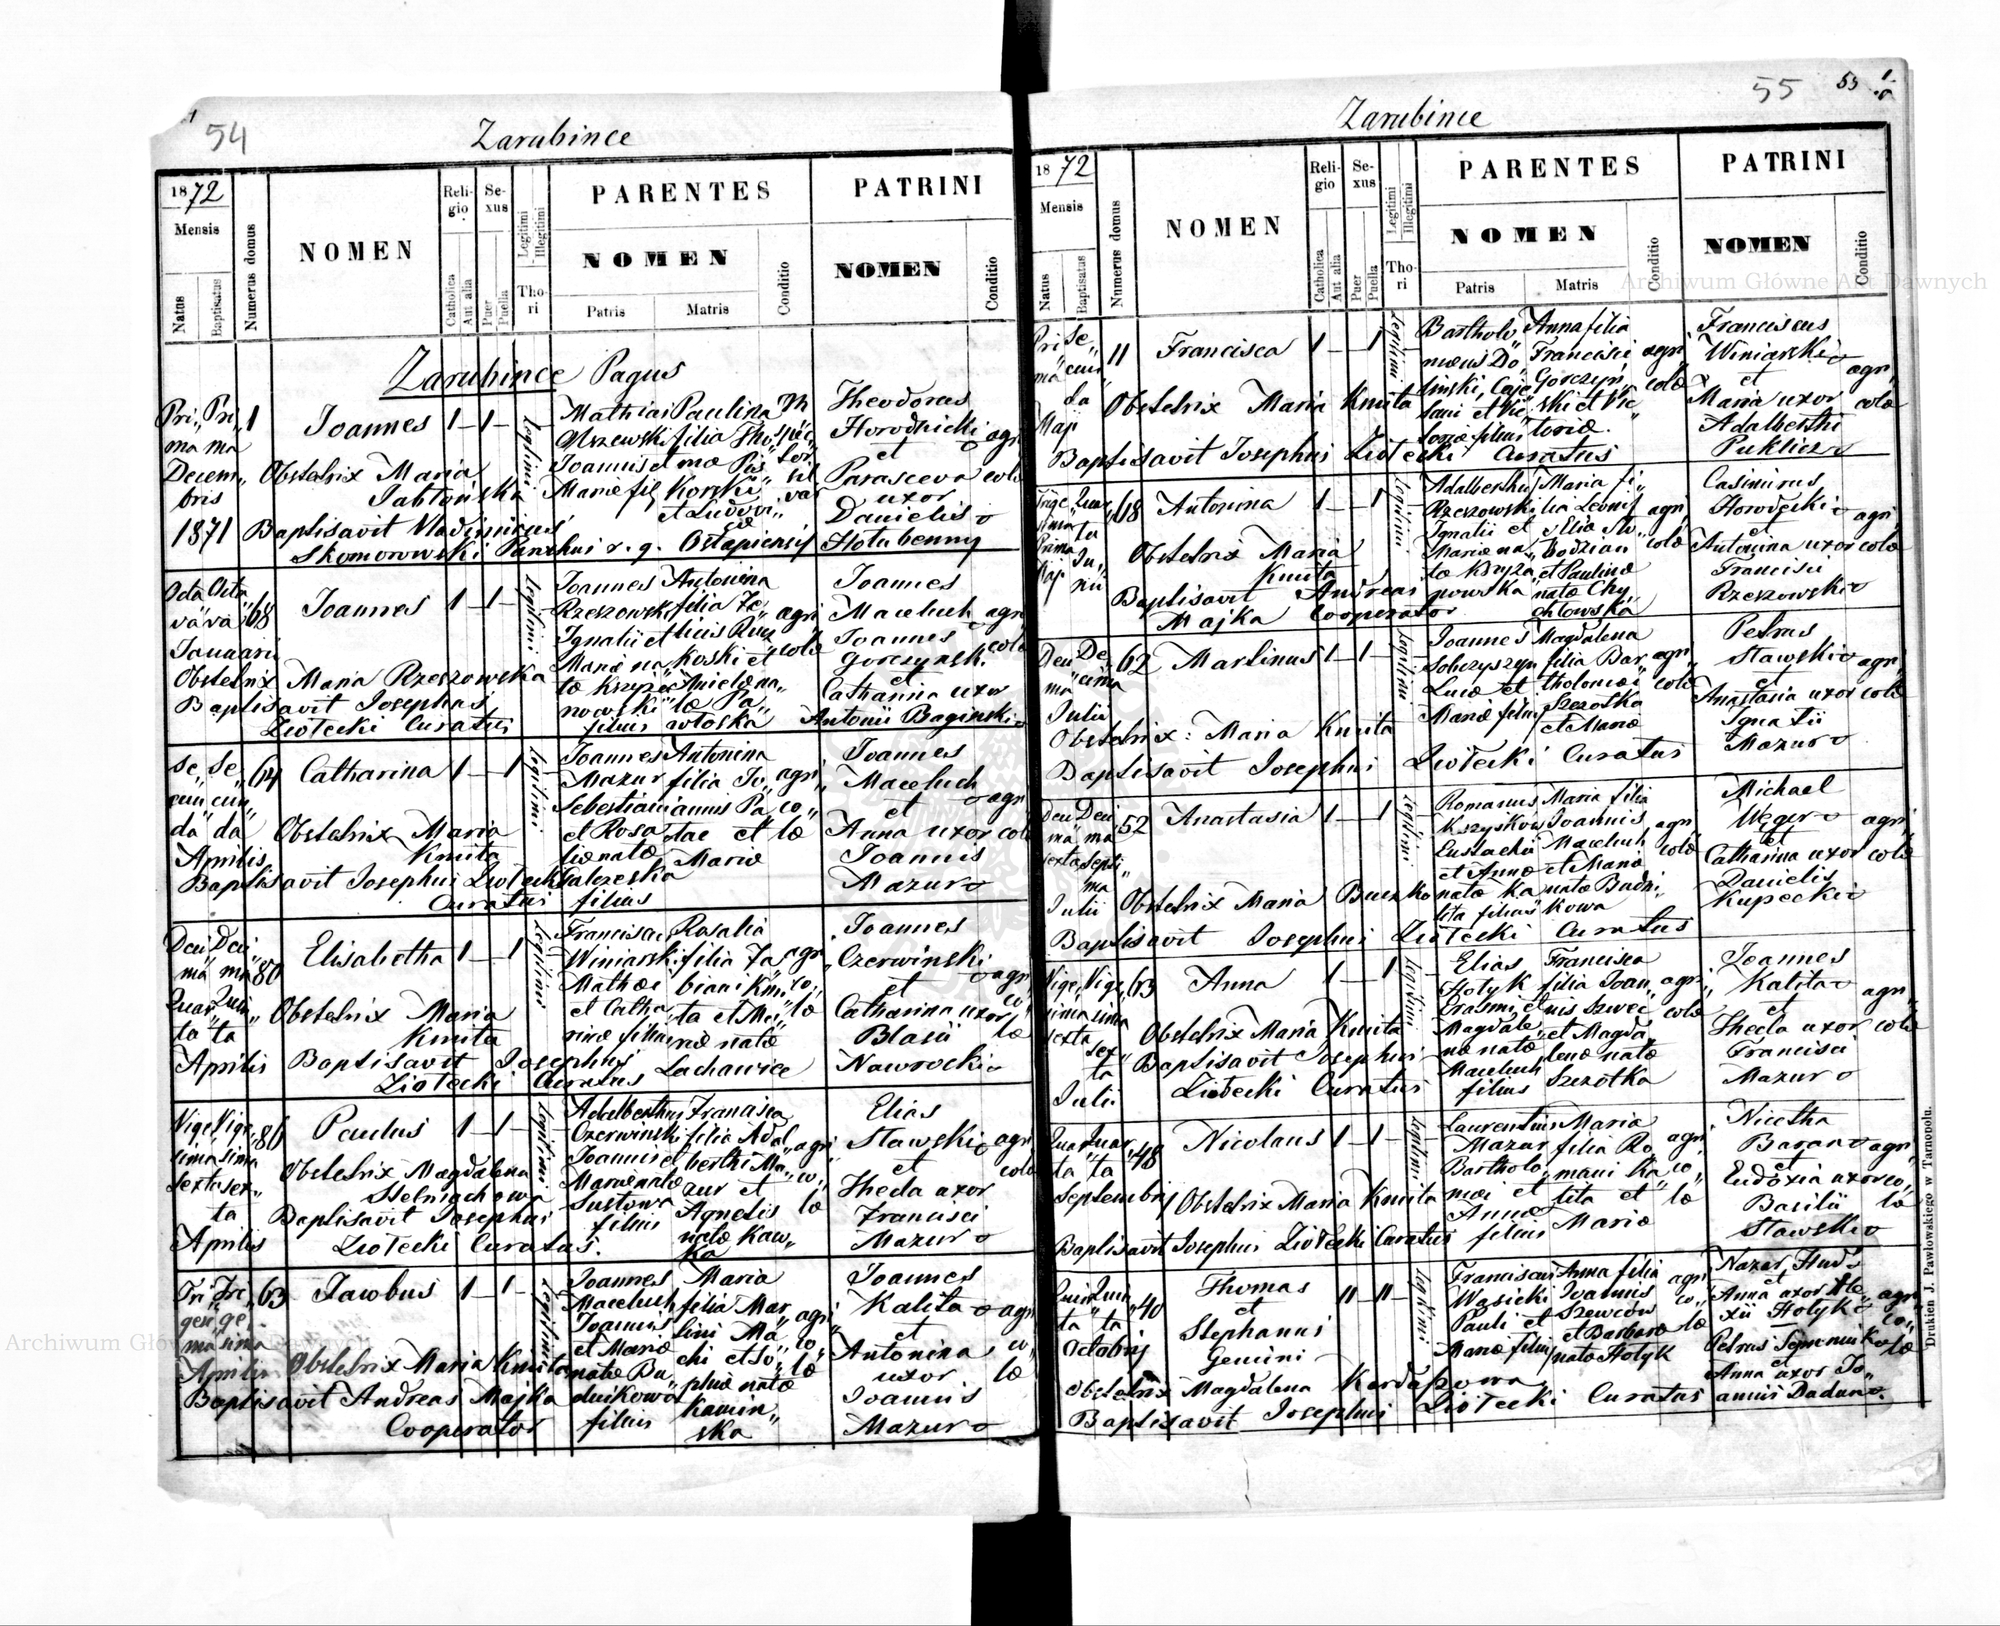 54
Zarubince
1872
Mensis
Natus
Baptisatus
Numerus domus
NOMEN
Religio
Catholica
Aut alia
Sexus
Puer
Puella
Legitimi
Illegitimi
Thori
PARENTES
NOMEN
Patris
Matris
Conditio
PATRINI
NOMEN
Conditio
Zarubince Pagus
Prima
Prima
Decembris
1871
1
Joannes
1 — 1 —
Legitimi
Obstetrix Maria
Jabłońska
Baptisavit Vladimirus
Skomorowski Parochus r. g. Ostapiensis
Mathias
Joannis et
Mariæ
Paulina
filia Tho
mæ
Theodorus
Horodnicki
et
Parasceva
uxor
Danielis
Hołubenny
agri
colæ
Octava
Januarii
68
Joannes
1 — 1 —
Legitimi
Obstetrix Maria Rzeszowska
Baptisavit Josephus
Ziołecki Curatus
Joannes
Rzeszowski
Ignatii et
Mariæ na
tæ Krzyża
nowski
filius
Antonina
filia Fe
licis
koski et
Anielæ na
tæ Pa
włoska
agri
colæ
Joannes
Maceluch
Joannes
Gorczynski
et
Catharina uxor
Antonii Baginski
agri
colæ
Secunda
Secunda
Aprilis
64
Catharina
1 — — 1
Legitimi
Obstetrix Maria
Kmita
Baptisavit Josephus Ziołecki
Curatus
Joannes
Mazur
Sebestiani
et Rosa
liæ natæ
Galczeska
filius
Antonina
filia Jo
annis Pa
tac et
Mariæ
agri
co
læ
Joannes
Maceluch
et
Anna uxor
Joannis
Mazur
agri
colæ
Decima Quarta
Decima Quinta
Aprilis
80
Elisabetha
1 — — 1
Legitimi
Obstetrix Maria
Kmita
Baptisavit Josephus
Ziołecki Curatus
Franciscus
Winiarski
Mathæi
et Catha
rinæ filius
Rosalia
filia Fa
biani Kmi
ta et Ma
riæ natæ
Lachowicz
agri
co
læ
Joannes
Czerwinski
et
Catharina uxor
Blasii
Nawrocki
agri
co
læ
Vigesima sexta
Vigesima sexta
Aprilis
86
Paulus
1 — 1 —
Legitimi
Obstetrix Magdalena
Baptisavit Josephus
Ziołecki Curatus.
Adalbertus
Czerwinski
Joannis et
Mariæ natæ
Sustowa
filius
Francisca
filia Adal
berthi Ma
zur et
Agnetis
natæ Kaw
ka
agri
co
læ
Elias
Stawski
et
Thecla uxor
Francisci
Mazur
agri
colæ
Aprilis
63
Jacobus
1 — 1 —
Legitimi
Obstetrix Maria Kmita
Baptisavit Andreas Majka
Cooperator
Joannes
Maceluch
Joannis
et Mariæ
natæ Bu
dnikowa
filius
Maria
filia Mar
tini Ma
chi et So
phiæ natæ
Kamin
ska
agri
co
læ
Joannes
Kalita
et
Antonina
uxor
Joannis
Mazur
agri
co
læ
55
55
Zarubince
1872
Mensis
Natus
Baptisatus
Numerus domus
NOMEN
Religio
Catholica
Aut alia
Sexus
Puer
Puella
Legitimi
Illegitimi
Thori
PARENTES
NOMEN
Patris
Matris
Conditio
PATRINI
NOMEN
Conditio
Prima
Secunda
Maji
11
Francisca
1 — — 1
Legitimi
Obstetrix Maria Kmita
Baptisavit Josephus Ziołecki Curatus
Bartholo
mæus Do
linski, Caje
tani et Vic
toriæ filius
Anna filia
Francisci
Gorczyn
ski et Vic
toriæ.
agri
colæ
Franciscus
Winiarski
et
Maria uxor
Adalberthi
Puklicz
agri
colæ
Trigesima Prima Maji
Quarta Junii
68
Antonina
1 — — 1
Legitimi
Obstetrix Maria
Kmita
Baptisavit Andreas
Majka Cooperator
Adalberthus
Rzeszowski
Ignatii et
Mariæ na
tæ Krzyża
nowska
Maria fi
lia Leonis
et Paulinæ
natæ Chy
chłowska
agri
colæ
Casimirus
et
Antonina uxor
Francisci
Rzeszowski
agri
colæ
Decima
Decima
Julii
62
Martinus
1 — 1 —
Legitimi
Obstetrix: Maria Kmita
Baptisavit Josephus Ziołecki Curatus
Joannes
Sobczyszyn
Lucæ et
Mariæ filius
Magdalena
filia Bar
tholomæi
Szczotka
et Mariæ
agri
colæ
Petrus
Stawski
et
Anastasia uxor
Ignatii
Mazur
agri
colæ
Decima sexta
Decima septima
Julii
52
Anastasia
1 — — 1
Legitimi
Obstetrix Maria Buczko
Baptisavit Josephus Ziołecki Curatus
Romanus
Kszyśków
Eustachii
et Annæ
natæ Ka
lita filius
Maria filia
Joannis
Maceluch
et Mariæ
natæ Budni
kowa
agri
colæ
Michael
Węger
et
Catharina uxor
Danielis
Kupecki
agri
colæ
Vigesima sexta
Vigesima sexta
Julii
63
Anna
1 — — 1
Legitimi
Obstetrix Maria Kmita
Baptisavit Josephus
Ziołecki Curatus
Elias
Hołyk
Erasmi et
Magdale
næ natæ
Maceluch
filius
Francisca
filia Joan
nis Szwec
et Magda
lenæ natæ
Szczotka
agri
colæ
Joannes
Kalita
et
Thecla uxor
Francisci
Mazur
agri
colæ
Quarta
Quarta
Septembris
48
Nicolaus
1 — 1 —
Legitimi
Obstetrix Maria Kmita
Baptisavit Josephus Ziołecki Curatus
Laurentius
Mazur
Bartholo
mæi et
Annæ
filius
Maria
filia Ro
mani Ka
lita et
Mariæ
agri
co
læ
Nicetha
Baran
et
Eudoxia uxor
Basilii
Stawski
agri
co
læ
Quinta
Quinta
Octobris
40
Thomas
et
Stephanus
Gemini
11 — 11 —
Legitimi
Obstetrix Magdalena Kardaszowa
Baptisavit Josephus Ziołecki Curatus
Franciscus
Wasicki
Pauli et
Mariæ filius
Anna filia
Joannis
Szewców
et Barbaræ
natæ Hołyk
agri
co
læ
Nazar
et
Anna uxor Ale
xii Hołyk
Petrus
et
Anna uxor Jo
annis Dadun.
agri
co
læ
Drukiem J. Pawłowskiego w Tarnopolu.
Archiwum Główne Akt Dawnych
Archiwum Główne Akt Dawnych